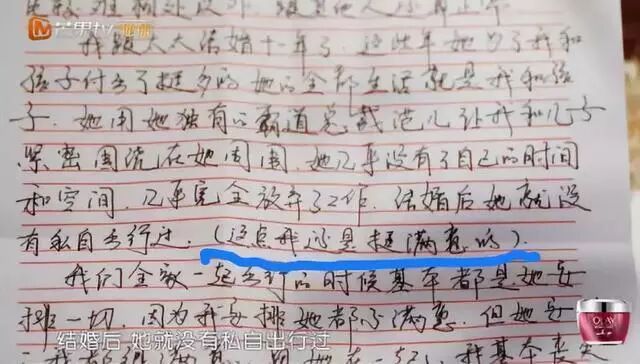 芒果TV
我跟太太结婚十一年了,这些年她为了我和
孩子付出了挺多的她的全部生活就是我和孩
子.她用她独有的霸道总裁范儿让我和儿子
紧密围绕在她周围.她几乎没有了自己的时间
和空间,几乎完全放弃了工作.结婚后她就没
有私自出行过.(这点我还是挺满意的).
我们全家一起出行的时候基本都是她安
排一切.因为我安排她都不满意.但她安
结婚后 她就没有私自出行过
OLAY